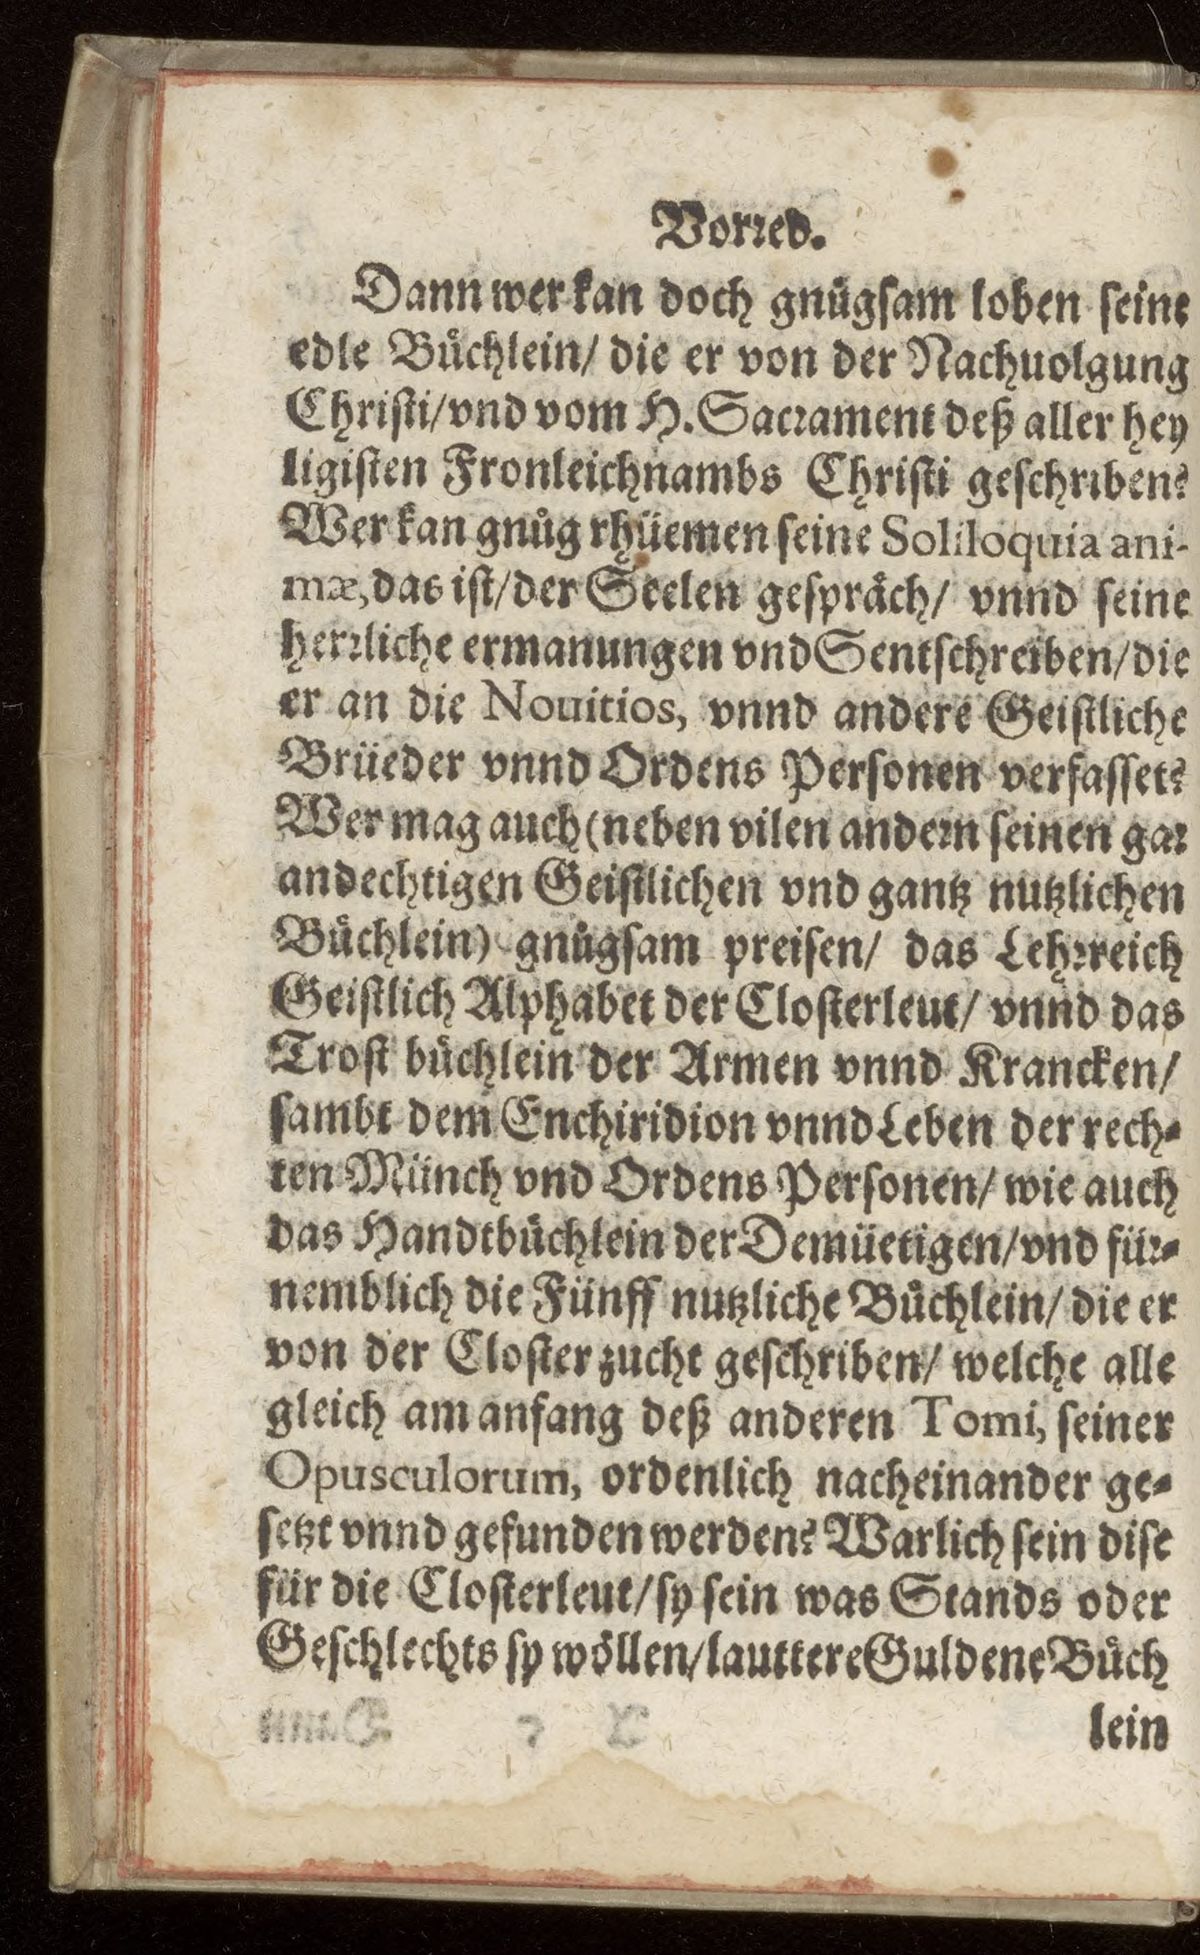 Vorred.
Dann wer kan doch gnůgsam loben seine
edle Bůchlein/ die er von der Nachuolgung
Christi/ vnd vom H. Sacrament deß aller hey
ligisten Fronleichnambs Christi geschriben?
Wer kan gnůg rhüemen seine Soliloquia ani-
mæ, das ist/ der Seelen gespräch/ vnnd seine
herrliche ermanungen vnd Sentschreiben/ die
er an die Nouitios, vnnd andere Geistliche
Brüeder vnnd Ordens Personen verfasset?
Wer mag auch (neben vilen andern seinen gar
andechtigen Geistlichen vnd gantz nutzlichen
Bůchlein) gnůgsam preisen/ das Lehrreich
Geistlich Alphabet der Closterleut/ vnnd das
Trost bůchlein der Armen vnnd Krancken/
sambt dem Enchiridion vnnd Leben der rech-
ten Münch vnd Ordens Personen/ wie auch
das Handtbůchlein der Demüetigen/ vnd für-
nemblich die Fünff nutzliche Bůchlein/ die er
von der Closter zucht geschriben/ welche alle
gleich am anfang deß anderen Tomi, seiner
Opusculorum, ordenlich nacheinander ge-
setzt vnnd gefunden werden? Warlich sein dise
für die Closterleut/ sy sein was Stands oder
Geschlechts sy wöllen/ lauttere Guldene Bůch
lein